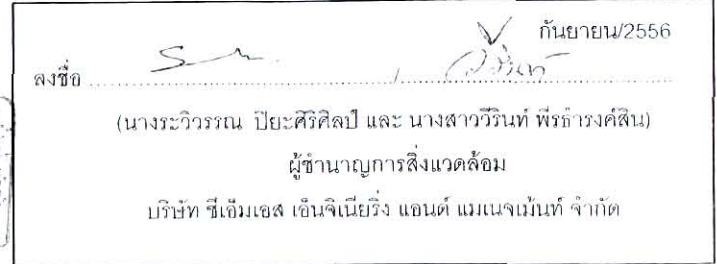 กันยายน/2556
ลงชื่อ ........................ / ........................
(นางระวิวรรณ ปิยะศิริศิลป์ และ นางสาววีรินท์ พีรธำรงค์สิน)
ผู้ชำนาญการสิ่งแวดล้อม
บริษัท ซีเอ็มเอส เอ็นจิเนียริ่ง แอนด์ แมเนจเม้นท์ จำกัด